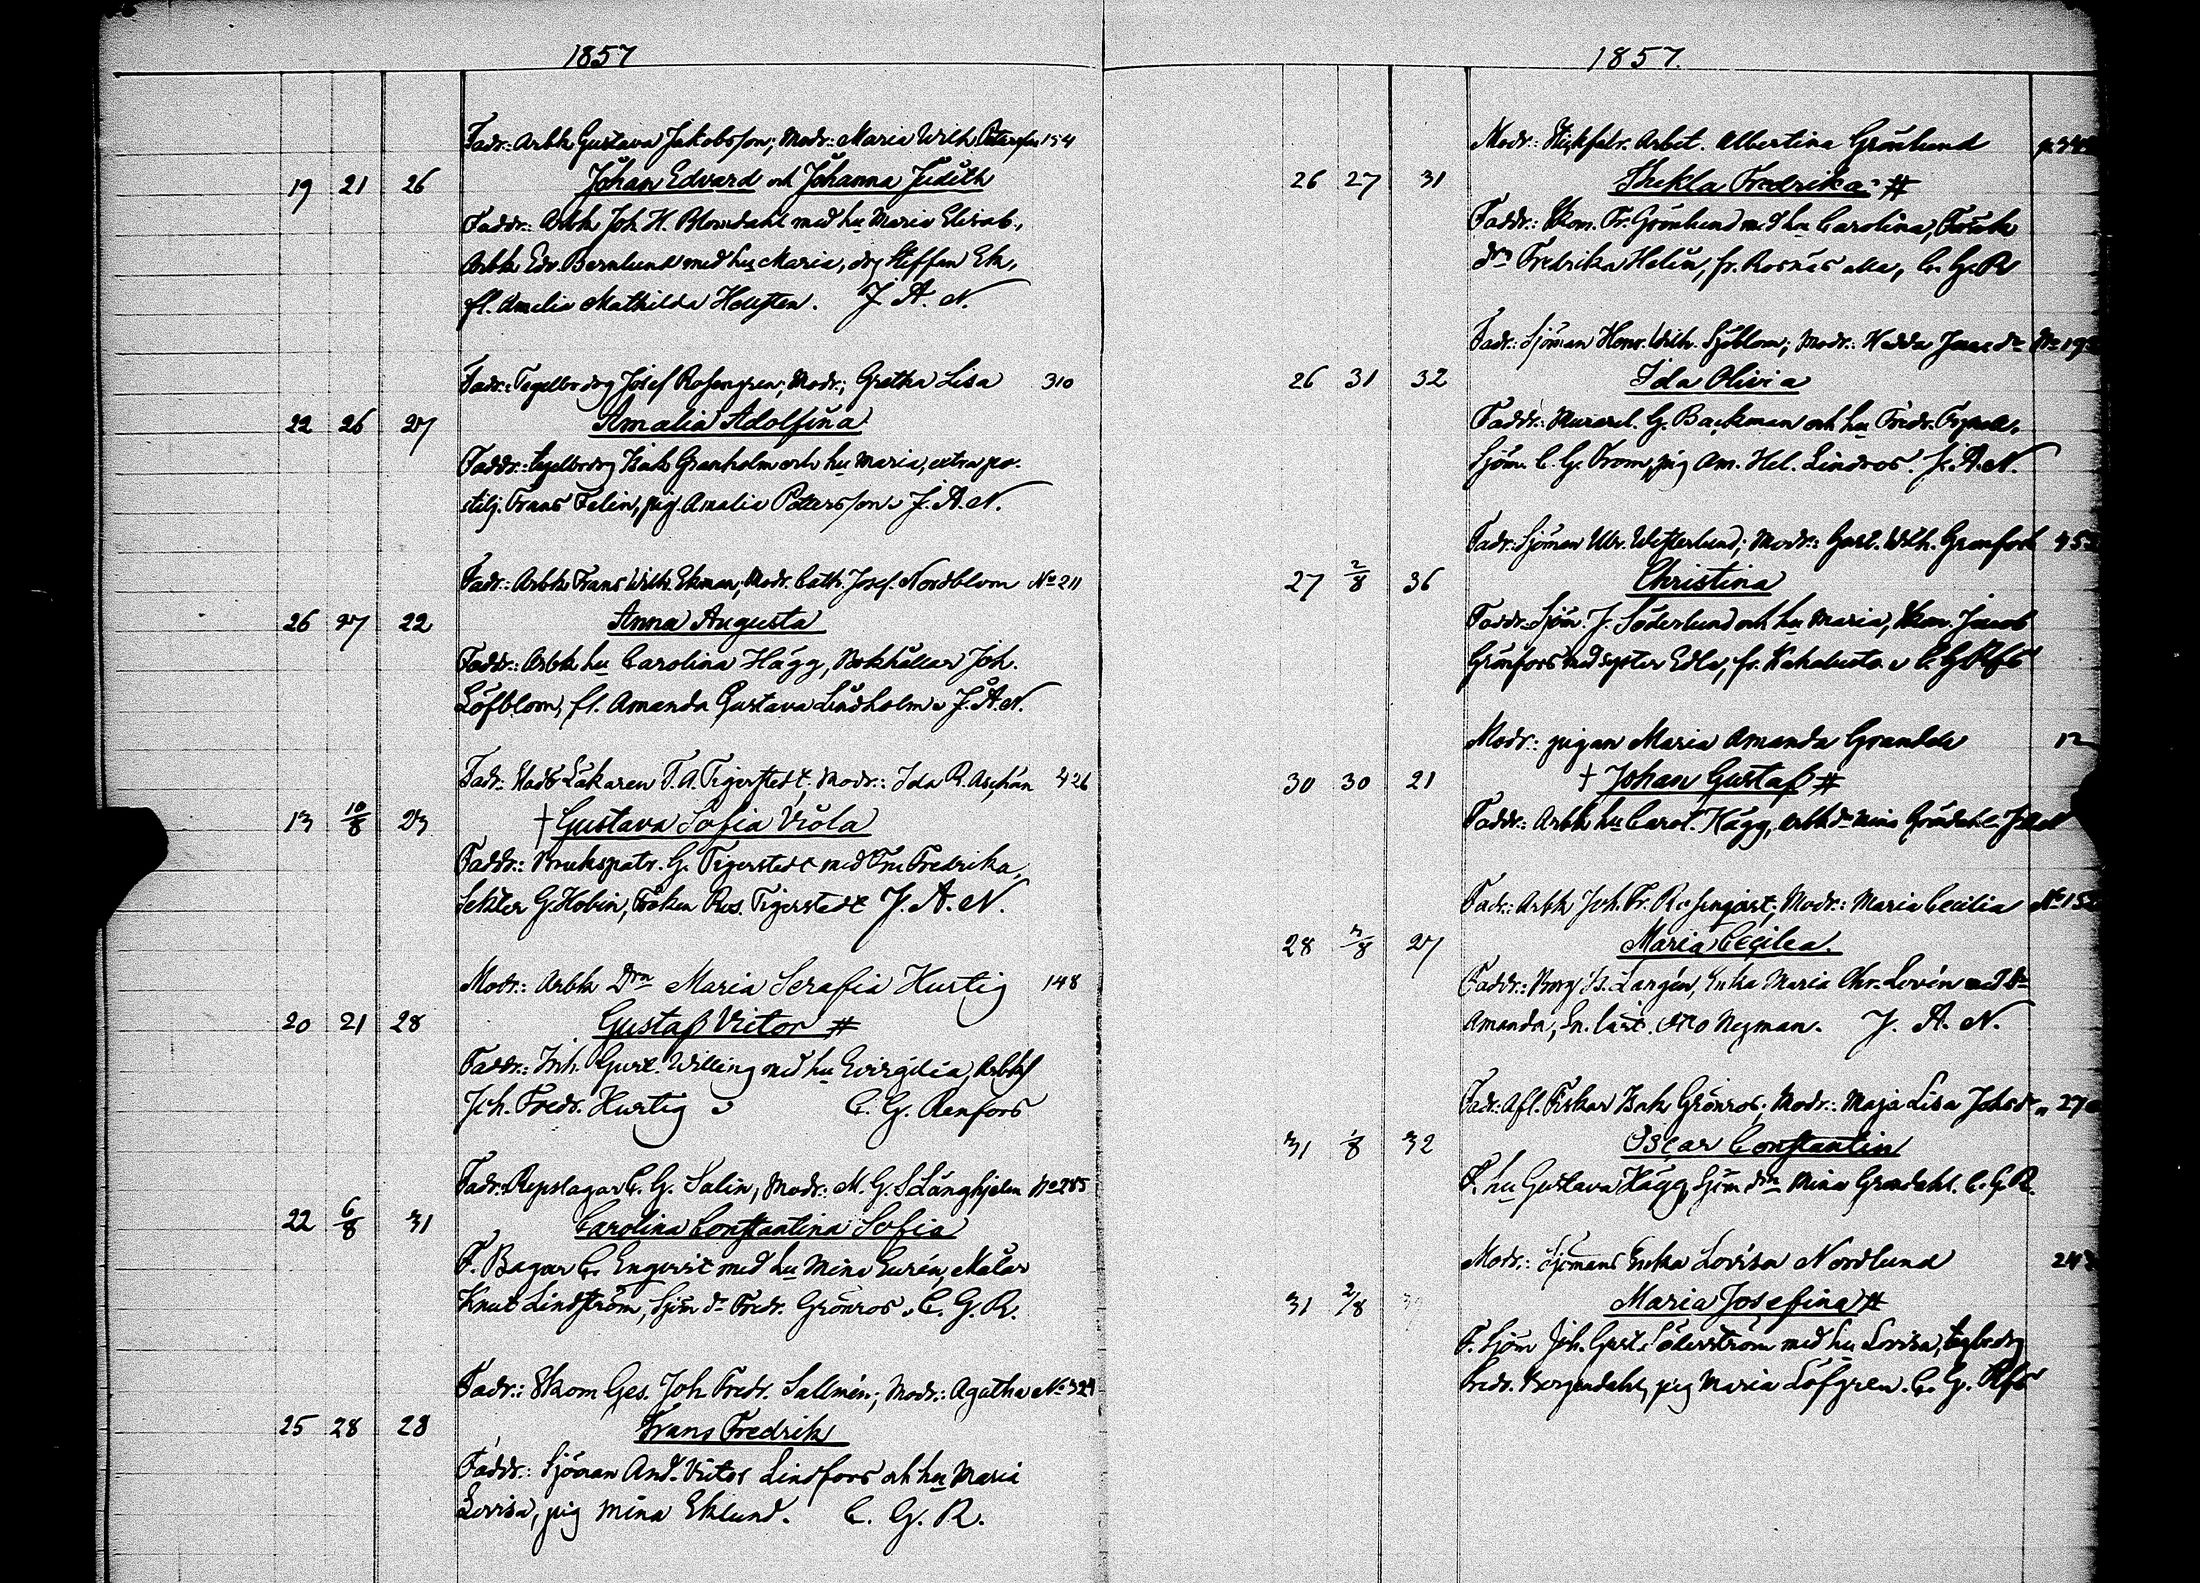 1857
Fadr: Arbk Gustava Jakobsson; Modr: Maria Wilh Petersson 154
19 21 26 Johan Edvard och Johanna Judith
Faddr: Arbk Joh H. Blomdahl med hu Maria Elisab.,
Arbk Edv. Bernlund med hu Maria, drg Steffan Ek,
fl. Amelia Mathilda Hollsten. J. A. N.
Fadr: Tegelbr drg Josef Rosengren; Modr; Gretha Lisa 310
22 26 27 Amalia Adolfina
Faddr: tegelbr drg Isak Granholm och hu Maria, extra po-
stilj. Frans Felin, pig. Amalia Pettersson. J. A. N.
Fadr: Arbk Frans Wilh. Ekman; Modr. Cath. Josef. Nordblom No 211
26 27 22 Anna Augusta
Faddr: Arbk hu Carolina Hägg, Bokhållar Joh.
Löfblom, fl. Amanda Gustava Lindholm. J. A. N.
Fadr: Stads Läkaren F. A. Tigerstedt; Modr: Ida R. Aschan 426
13 10/8 23 † Gustava Sofia Viola
Faddr: Brukspatr. G. Tigerstedt med Fru Fredrika,
Sekter G. Hobin, Fröken Ros. Tigerstedt J. A. N.
Modr: Arbk Drn Maria Serafia Hurtig 148
20 21 28 Gustaf Victor #
Faddr: Inh. Gust. Willing med hu Evirgilia, Arbk
Joh. Fredr. Hurtig C. G. Renfors
Fadr: Repslagar C. G. Salin, Modr: M. G. S Långhjelm No 285
22 6/8 31 Carolina Constantina Sofia
F. Bagar C. Engqvist med hu Mina Eurén, Målar
Knut Lindström, Sjöm dr Fredr. Grönros. C. G. R.
Fadr: Skom Ges. Joh Fredr. Sallmén; Modr: Agatha No 324
25 28 28 Frans Fredrik
Faddr: Sjöman And. Victor Lindfors och hu Maria
Lovisa, pig Mina Eklund. C. G. R.
1857.
Modr: Arbet. Albertina Grönlund
26 27 31 Thekla Fredrika #
Faddr: Skom. Fr. Grönlund med hu Carolina,
drn Fredrika Helin, fr. Rosnäs C. G. R
Fadr: Sjöman Henr. Wilh. Sjöblom; Modr: Hedda
26 31 32 Ida Olivia
Faddr: G. Backman och hu Fredr.
Sjöm. C. G. From, pig Am. Hel. Lindros. J. A. N.
Fadr: Sjöman Ulr. Westerlund; Modr: Gust. Wilh. Granfors
27 2/8 36 Christina
Faddr. Sjöm. J. Söderlund och hu Maria, Skom. Jacob
Grönfors med syster Edla, fr.
Modr: pigan Maria Amanda 12
30 30 21 † Johan Gustaf #
Faddr: Arbk hu Carol. Hägg, Arbk dr Mina J A N
Fadr: Arbk Joh. Fr. Rosenqvist; Modr: Maria Cecilia No
28 7/8 27 Maria Cecilia.
Faddr: Borg Is. Largén, Enka Maria Chr. Lovén med Dr
Amanda, Otto Nyman. J. A. N.
Fadr: Afl. Fiskar Isak Grönros; Modr: Maja Lisa Johsdr
31 1/8 32 Oscar Constantin
F. hu Gustava Hägg, Sjöm drn Mina Grandahl. C. G. R.
Modr: Sjömans Enka Lovisa Nordlund
31 2/8 Maria Josefina #
F. Sjöm Joh. Gust. Söderström med hu Lovisa, tegbr drg
Fredr. Borgendahl, pig Maria Löfgren. C. G. Rfs